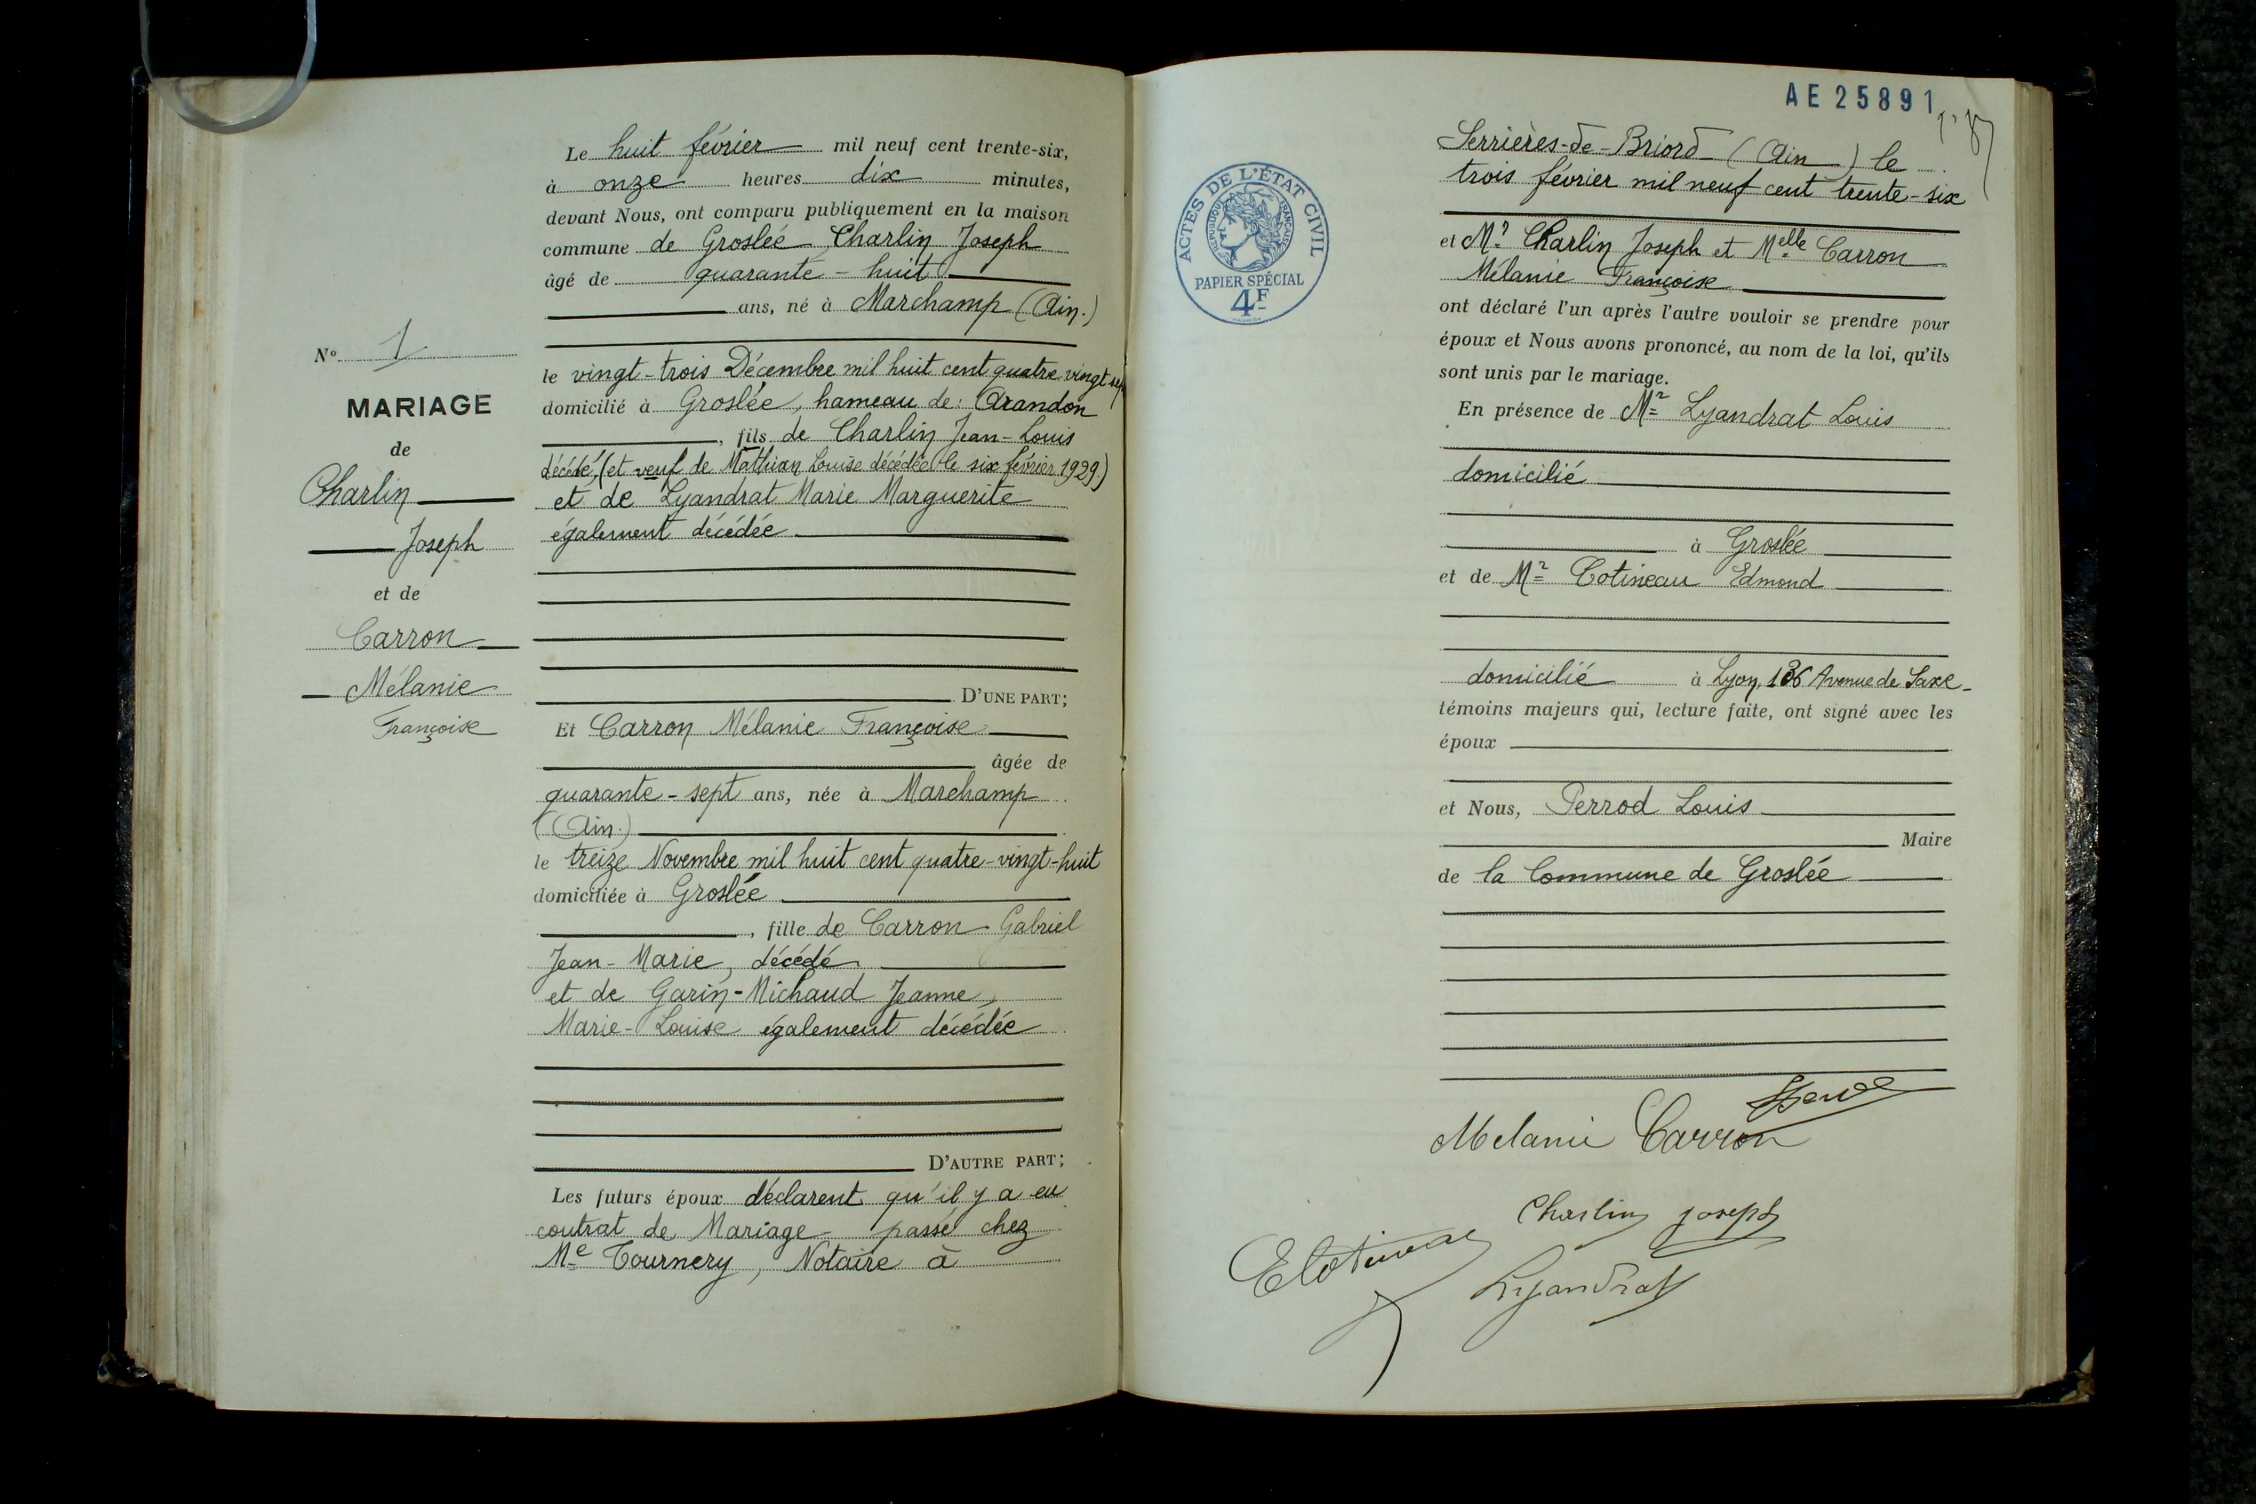 Le huit février mil neuf cent trente-six,
à onze heures dix minutes,
devant Nous, ont comparu publiquement en la maison
commune de Groslée Charlin Joseph
âgé de quarante-huit
ans, né à Marchamp (Ain.)
le vingt-trois Décembre mil huit cent quatre vingt sept
domicilié à Groslée, hameau de: Arandon
, fils de Charlin Jean-Louis
décédé, (et veuf de Mathian Louise décédée le six février 1929)
et de Lyandrat Marie Marguerite
également décédée
D'UNE PART;
Et Carron Mélanie Françoise
âgée de
quarante-sept ans, née à Marchamp
(Ain.)
le treize Novembre mil huit cent quatre-vingt-huit
domiciliée à Groslée
, fille de Carron Gabriel
Jean-Marie, décédé
et de Garin-Michaud Jeanne,
Marie-Louise également décédée
D'AUTRE PART;
Les futurs époux déclarent qu'il y a eu
contrat de Mariage passé chez
Me Tournery, Notaire à
No 1
MARIAGE
de
Charlin
Joseph
et de
Carron
Mélanie
Françoise
AE 25891
ACTES DE L'ÉTAT CIVIL
RÉPUBLIQUE FRANÇAISE
PAPIER SPÉCIAL
4F
Serrières-de-Briord (Ain) le
trois février mil neuf cent trente-six
et Mr Charlin Joseph et Melle Carron
Mélanie Françoise
ont déclaré l'un après l'autre vouloir se prendre pour
époux et Nous avons prononcé, au nom de la loi, qu'ils
sont unis par le mariage.
En présence de Mr Lyandrat Louis
domicilié
à Groslée
et de Mr Cotineau Edmond
domicilié à Lyon, 136 Avenue de Saxe
témoins majeurs qui, lecture faite, ont signé avec les
époux
et Nous, Perrod Louis
Maire
de la Commune de Groslée
Melanie Carron
Charlin joseph
ECotineau
Lyandrat